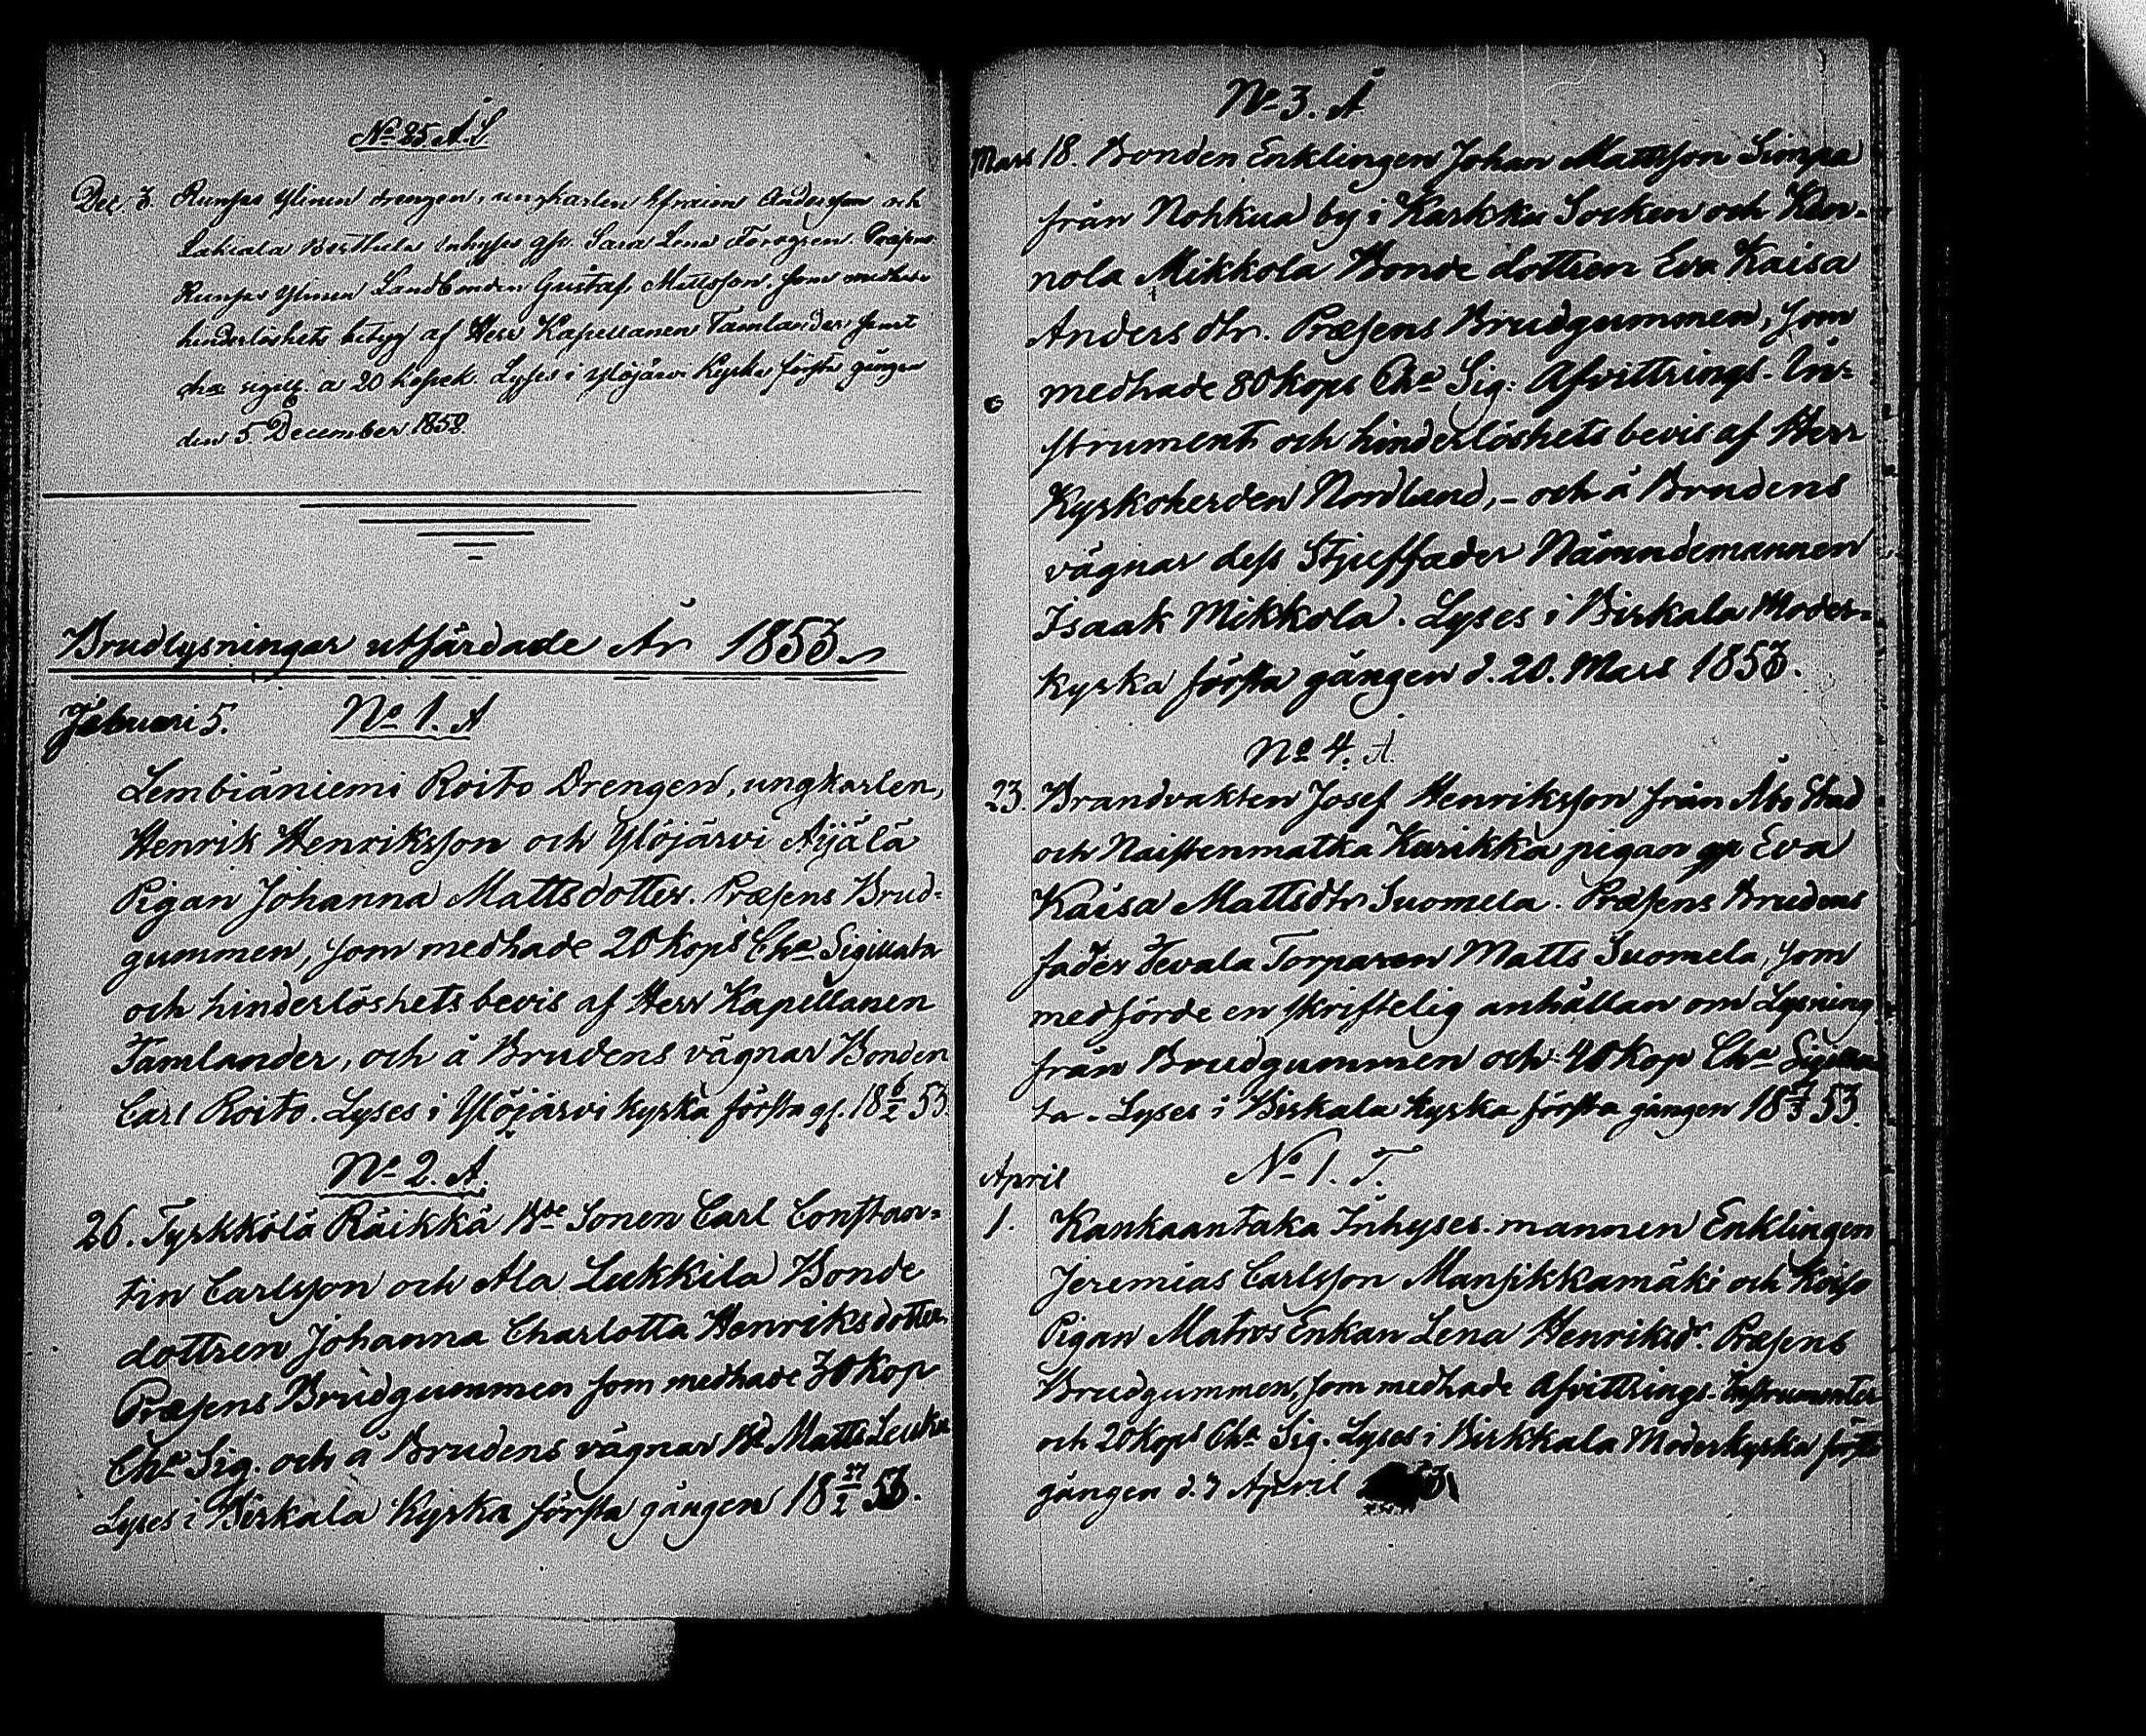 No 25. A. L.
Dec. 3. Runsas Ylinen drengen, ungkarlen Efraim Andersson och
Lakiala Berthula Inhyses qp. Sara Lena Forsgren. Præsens
Runsas Ylinen Landbonden Gustaf Mattsson, som medhade
hinderlöshets betyg af Herr Kapellanen Tamlander samt
cha sigill. a 20 kopek. Lyses i Ylöjärvi Kyrka första gången
den 5 December 1852.
Brudlysningar utfärdade År 1853.
Februari 5. No 1. A
Lembiäniemi Roito Drengen, ungkarlen,
Henrik Henriksson och Ylöjärvi Äijälä
Pigan Johanna Mattsdotter. Præsens Brud-
gummen, som medhade 20 kops Cha Sigillata
och hinderlöshets bevis af Herr Kapellanen
Tamlander, och å Brudens vägnar Bonden
Carl Roito. Lyses i Ylöjärvi Kyrka första gg. 18 6/2 53
No 2. A.
26. Tyrkkölä Räikkä Bde Sonen Carl Constan-
tin Carlsson och Ala Lukkila Bonde
dottren Johanna Charlotta Henriksdotter
Præsens Brudgummen som medhade 30 kop
Cha Sig. och å Brudens vägnar Bd Matts
Lyses i Birkala Kyrka första gången 18 27/2 53.
No 3. A
Mars 18. Bonden Enklingen Johan Mattsson Simpa
från Nohkua by i Karkku Socken och Ken-
nola Mikkola Bonde dottren Eva Kaisa
Anders dtr. Præsens Brudgummen, som
medhade 80 kops Cha Sig: Afvittrings-In-
strument och hinderlöshets bevis af Herr
Kyrkoherden Nordlund, - och å Brudens
vägnar dess Stjuffader Nämndemannen
Isaak Mikkola. Lyses i Birkala Moder-
kyrka första gången d. 20. Mars 1853.
No 4. A.
23. Brandvakten Josef Henriksson från Åbo Stad
och Naistenmatka Karikka pigan qp Eva
Kaisa Mattsdtr Suomela. Præsens Brudens
fader Tevala Torparen Matts Suomela, som
medförde en skriftelig anhållan om Lysning
från Brudgummen och 40 kop Cha Sigilla
ta. Lyses i Birkala Kyrka första gången 18 27/3 53.
April No 1. T.
1. Kankaantaka Inhyses-mannen Enklingen
Jeremias Carlsson Mansikkamäki och Koiso
Pigan Matros Enkan Lena Henriksdr. Præsens
Brudgummen, som medhade Afvittrings-Instrumenter
och 20 kops Cha Sig. Lyses i Birkkala Moderkyrka första
gången d. 3 April